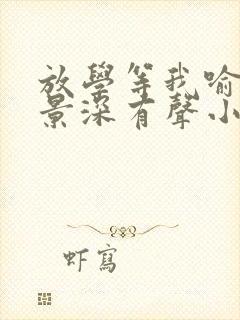 放學等我喻
景深有聲小
虾寫